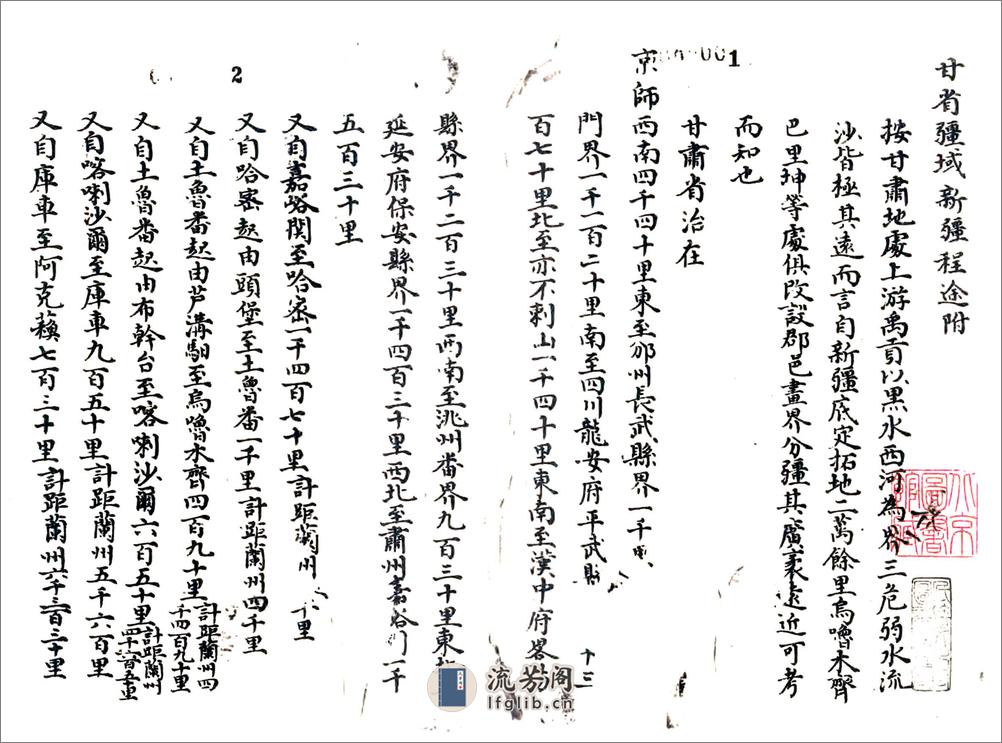 甘省疆域新疆程途附
按甘肅地處上游禹貢以黑水西河為界三危弱水流
沙皆極其遠而言自新疆底定拓地二萬餘里烏嚕木齊
巴里坤等處俱改設郡邑畫界分疆其廣袤遠近可考
而知也
甘肅省治在
京師西南四千四十里東至邠州長武縣界一千
門界一千一百二十里南至四川龍安府平武縣
十三
百七十里北至亦不剌山一千四十里東南至漢中府畧
縣界一千二百三十里西南至洮州番界九百三十里東
延安府保安縣界一千四百三十里西北至肅州嘉峪 一千
五百三十里
又自嘉峪関至哈密一千四百七十里計距蘭州 千里
又自哈密起由頭堡至土魯番一千里計距蘭州四千里
又自土魯番起由芦溝馹至烏嚕木齊四百九十里計距蘭州四千四百九十里
又自土魯番起由布幹台至喀喇沙爾六百五十里計距蘭州四千六百五十里
又自喀喇沙爾至庫車九百五十里計距蘭州五千六百里
又自庫車至阿克蘓七百三十里計距蘭州六千三百三十里
1
2
流芳阁
lfglib.cn